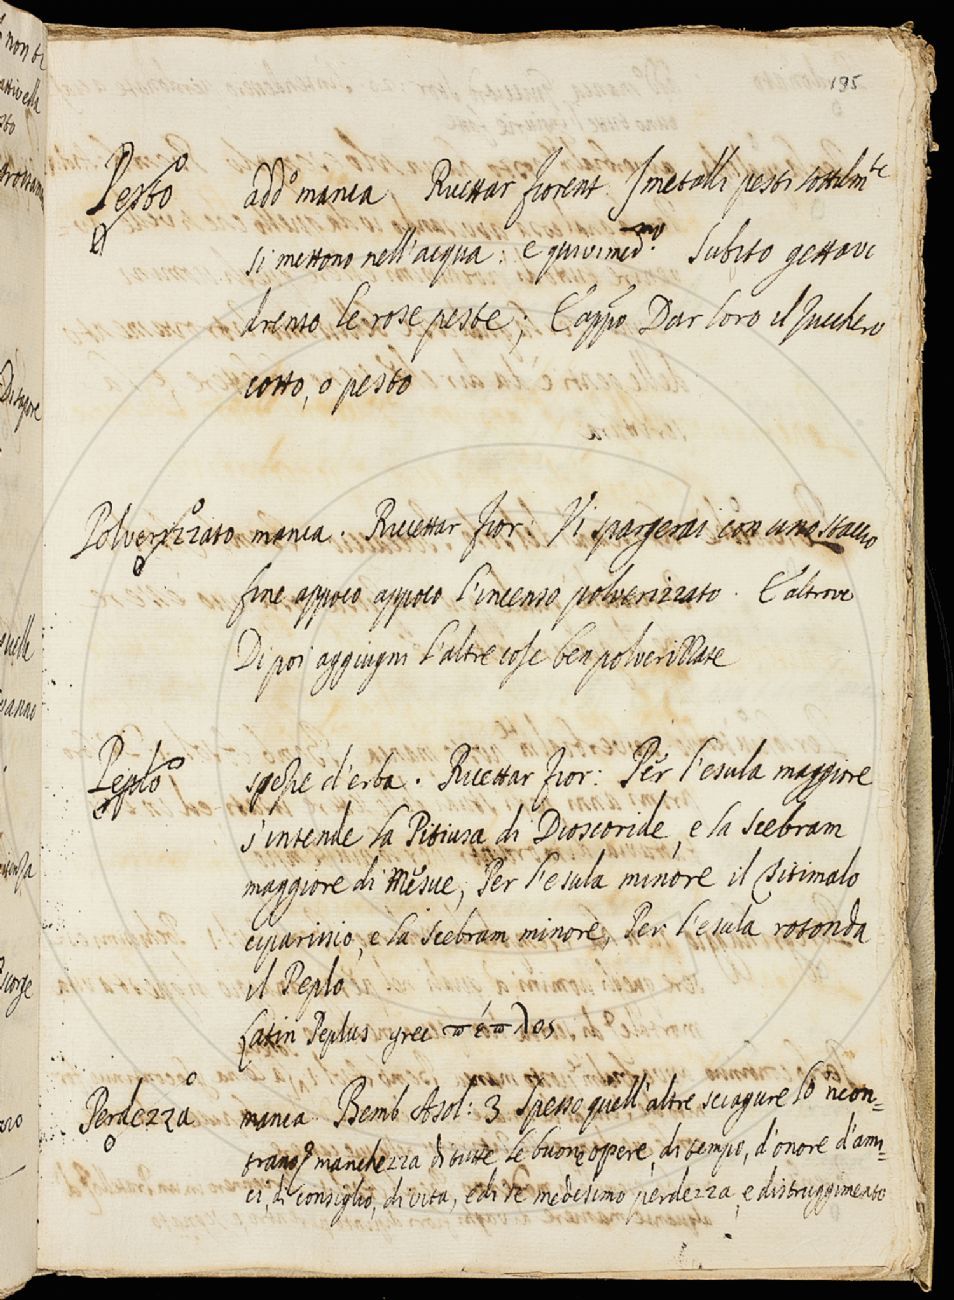 195
Pesto add.o manca Ricettar fiorent. I metalli pesti sottilm.te
si mettono nell'acqua: e quivi med.mo Subito gettavi
drento le rose peste; E appo Dar loro il Zucchero
cotto, o pesto
Polverizzato manca. Ricettar fior: Vi spargerai con uno staccio
fine appoco appoco l'incenso polverizzato. E altrove
Di poi aggiugni l'altre cose ben polverizzate
Peplo spezie d'erba. Ricettar fior: Per l'esula maggiore
s'intende la Pitiusa di Dioscoride, e la Scebram
maggiore di Mesue; Per l'esula minore il titimalo
ciparissio, e la scebram minore, Per l'esula rotonda
il Peplo
Latin Peplus grec πέπλος
Perdezza manca Bemb Asol: 3 Spesso quell'altre sciagure lo ncon=
trano manchezza di tutte le buone opere, di tempo, d'onore d'ami=
ci, di consiglio, di vita, e di se medesimo perdezza, e distruggimento